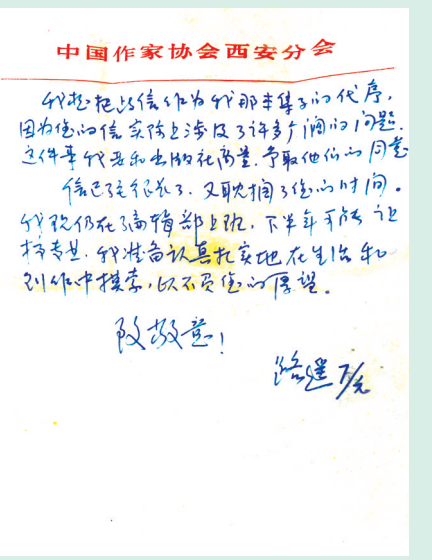 中国作家协会西安分会
我想把此信作为我那本集子的代序,
因为您的信实际上涉及了许多广阔的问题.
这件事我要和出版社商量,争取他们的同意
信已经很长了,又耽搁了您的时间。
我现仍在编辑部上班,下半年可能让
搞专业.我准备认真扎实地在生活和
创作中摸索,以不负您的厚望。
致敬意!
路遥